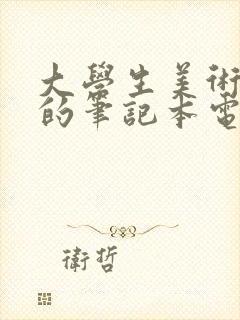 大學生美術
的筆記本電
衛哲